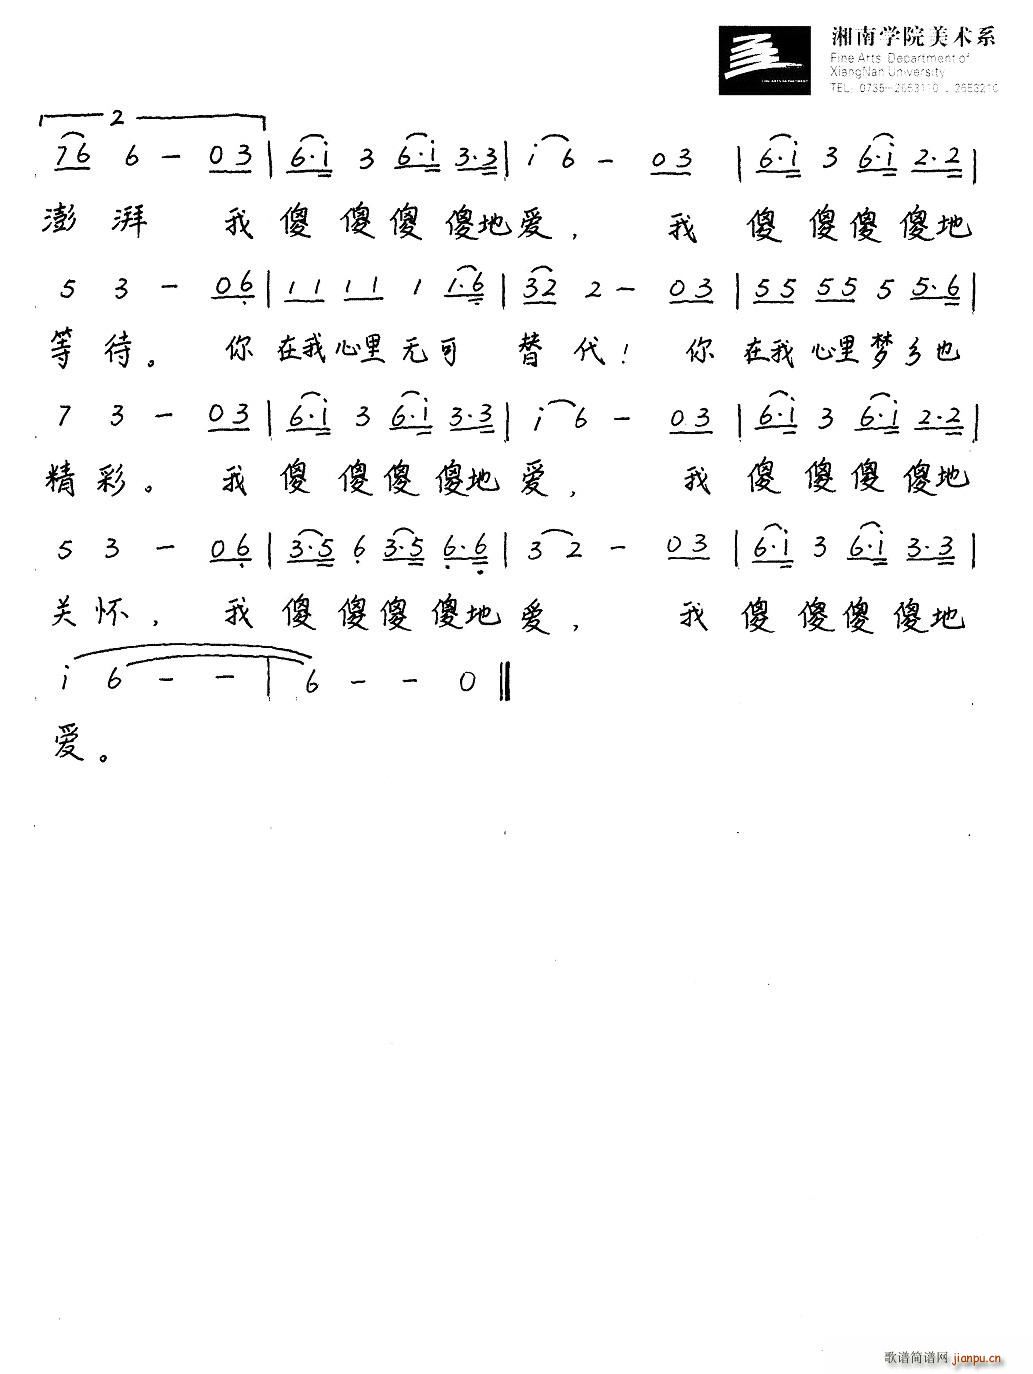 湘南学院美术系
Fine Arts Department of
XiangNan University
TEL: 0735-2653110 . 2653210
FINE ARTS DEPARTMENT
2
76 6 - 03 | 6·i 3 6·i 3·3 | i 6 - 03 | 6·i 3 6·i 2·2 |
澎湃 我傻傻傻傻地爱, 我傻傻傻傻地
5 3 - 06 | 11 11 1 1·6 | 32 2 - 03 | 55 55 5 5·6 |
等待。 你在我心里无可替代! 你在我心里梦乡也
7 3 - 03 | 6·i 3 6·i 3·3 | i 6 - 03 | 6·i 3 6·i 2·2 |
精彩。 我傻傻傻傻地爱, 我傻傻傻傻地
5 3 - 06 | 3·5 6 3·5 6·6 | 3 2 - 03 | 6·i 3 6·i 3·3 |
关怀, 我傻傻傻傻地爱, 我傻傻傻傻地
i 6 - - | 6 - - 0 ‖
爱。
歌谱简谱网 jianpu.cn